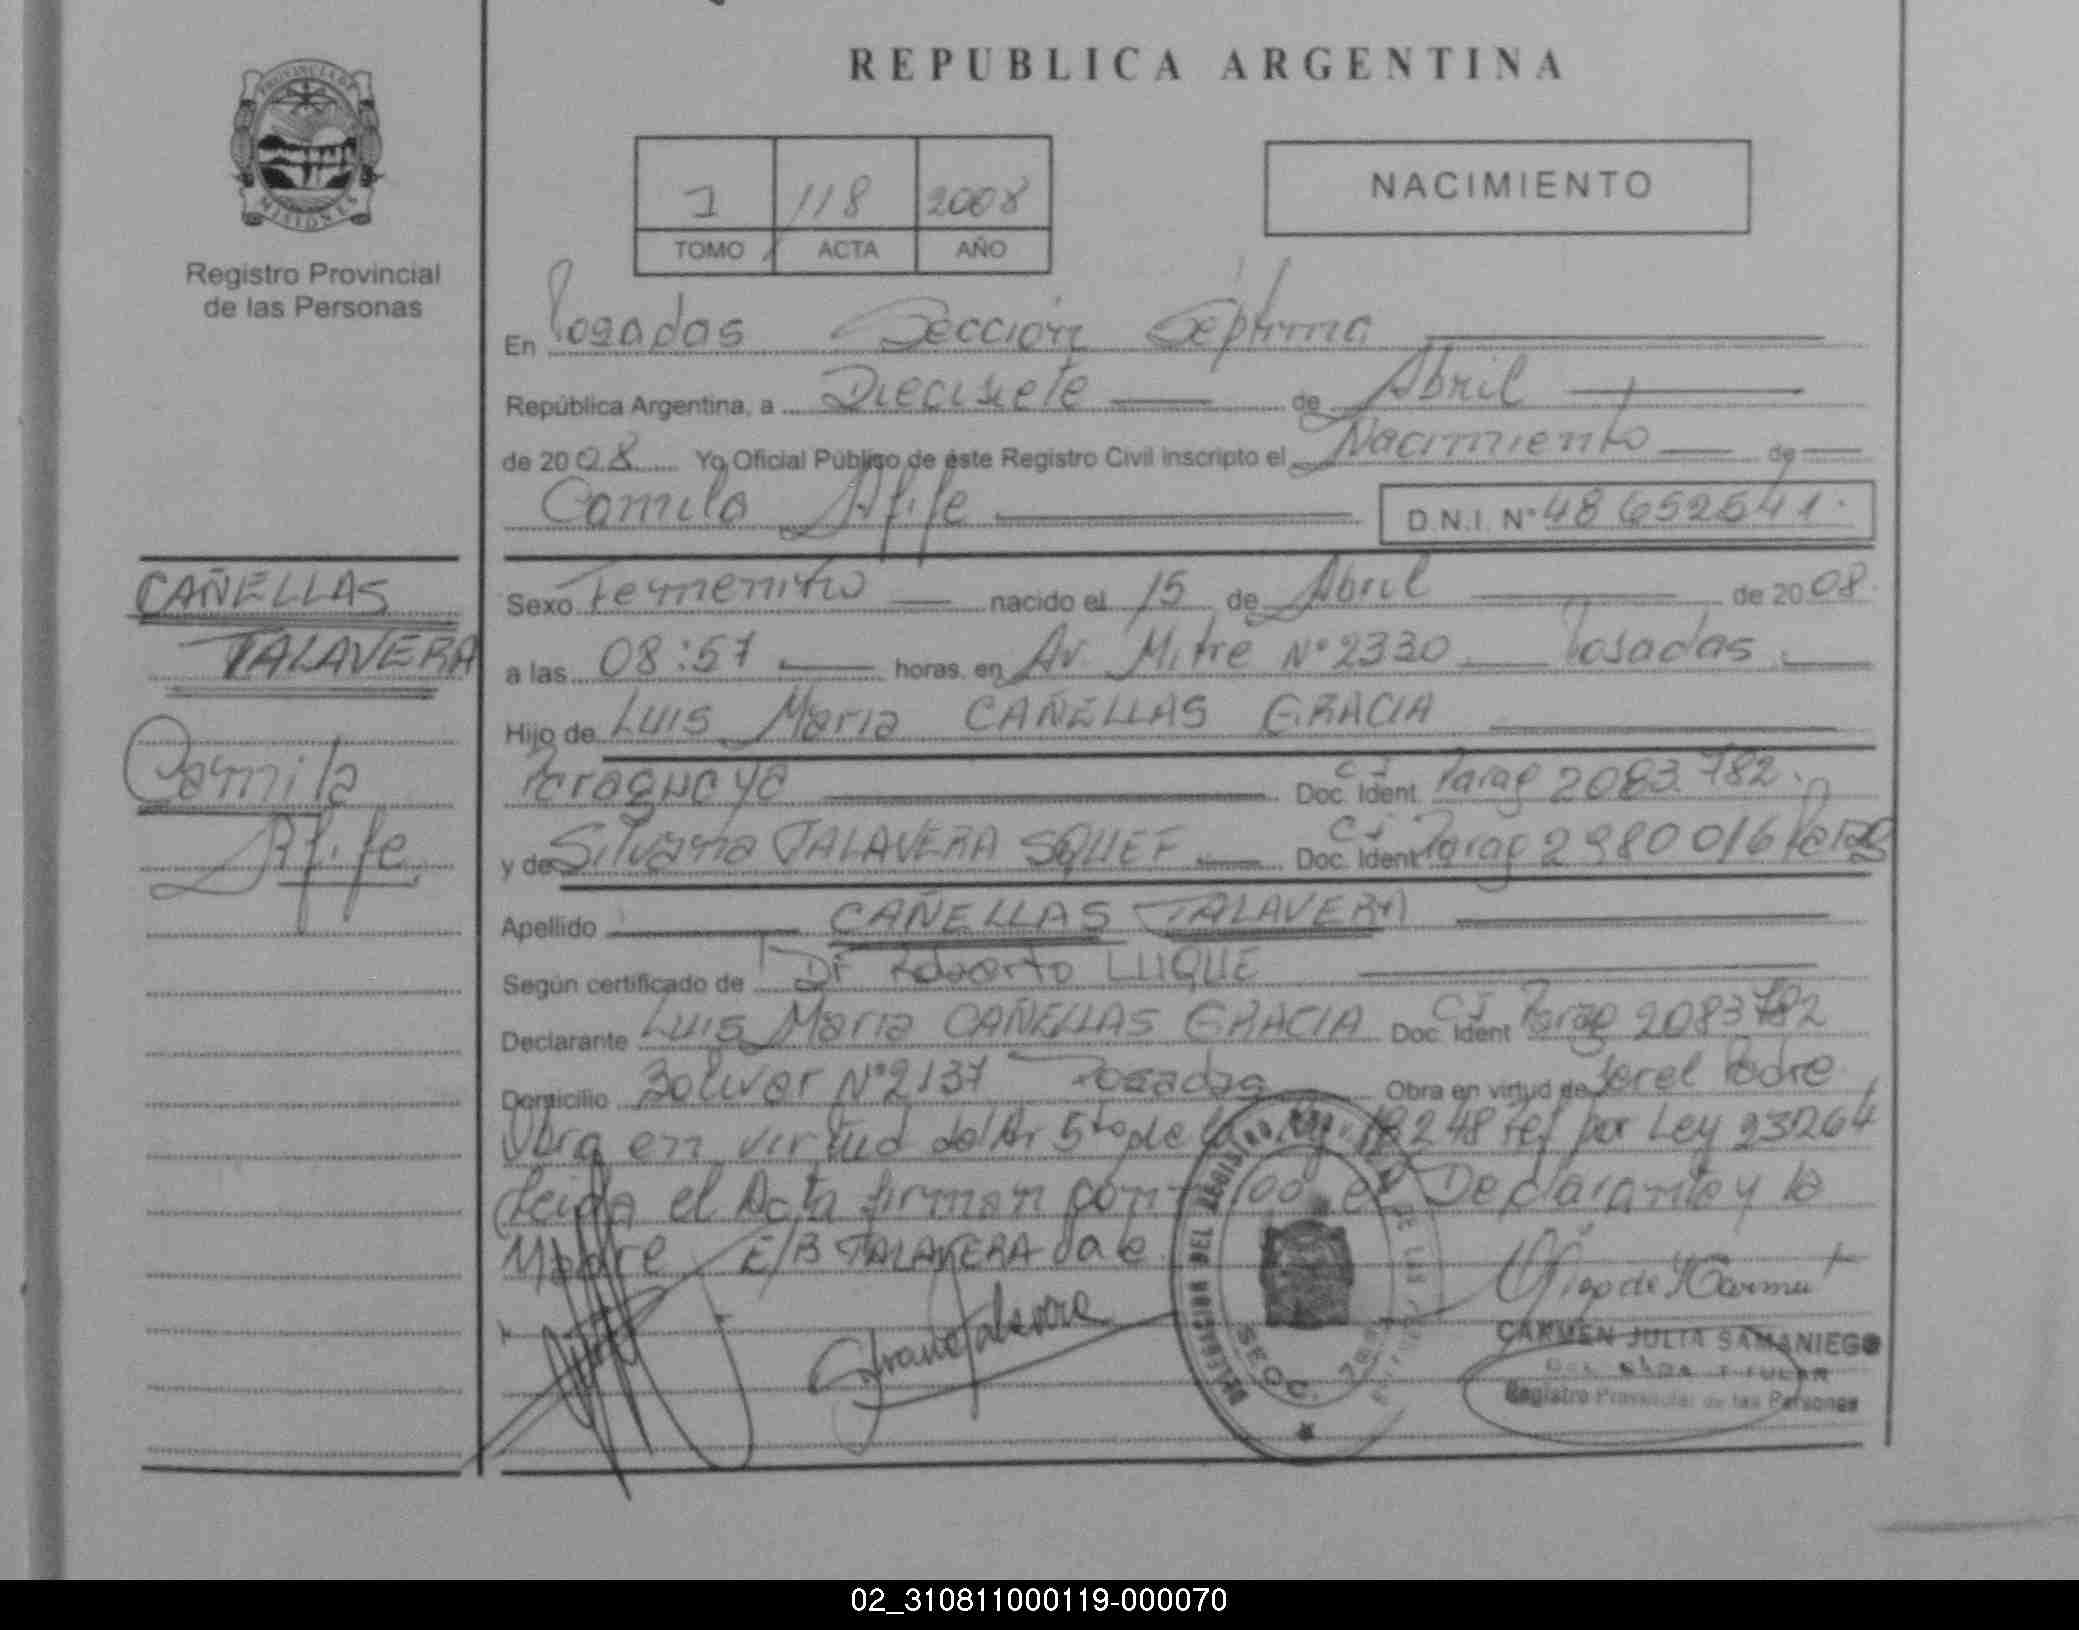 REPUBLICA ARGENTINA
PROVINCIA DE
MISIONES
Registro Provincial
de las Personas
1 118 2008
TOMO ACTA AÑO
NACIMIENTO
En Posadas Sección Séptima
República Argentina, a Diecisiete de Abril
de 2008 Yo Oficial Público de éste Registro Civil inscripto el Nacimiento de
Camila Afife D.N.I. Nº 48 652541.
CAÑELLAS
TALAVERA
Camila
Afife
Sexo Femenino nacido el 15 de Abril de 2008.
a las 08:57 horas, en Av. Mitre Nº 2330 Posadas
Hijo de Luis Maria CAÑELLAS GRACIA
Paraguaya Doc. Ident. CI Parag 2083.782.
y de Silvana TALAVERA SQUEF Doc. Ident CI Parag 2980016
Apellido CAÑELLAS TALAVERA
Según certificado de Dr Roberto LUQUE
Declarante Luis Maria CAÑELLAS GRACIA Doc. Ident CI Parag 2083782
Domicilio Bolivar Nº 2137 Posadas Obra en virtud de ser el Padre
Obra en virtud del Ar 5to de la Ley 18248 ref por Ley 23264
Leida el Acta firman conmigo el Declarante y la
Madre E/B TALAVERA Vale
Silvana Talavera
DELEGACION DEL REGISTRO
SECC. 7
CARMEN JULIA SAMANIEGO
TITULAR
Registro Provincial de las Personas
02_310811000119-000070